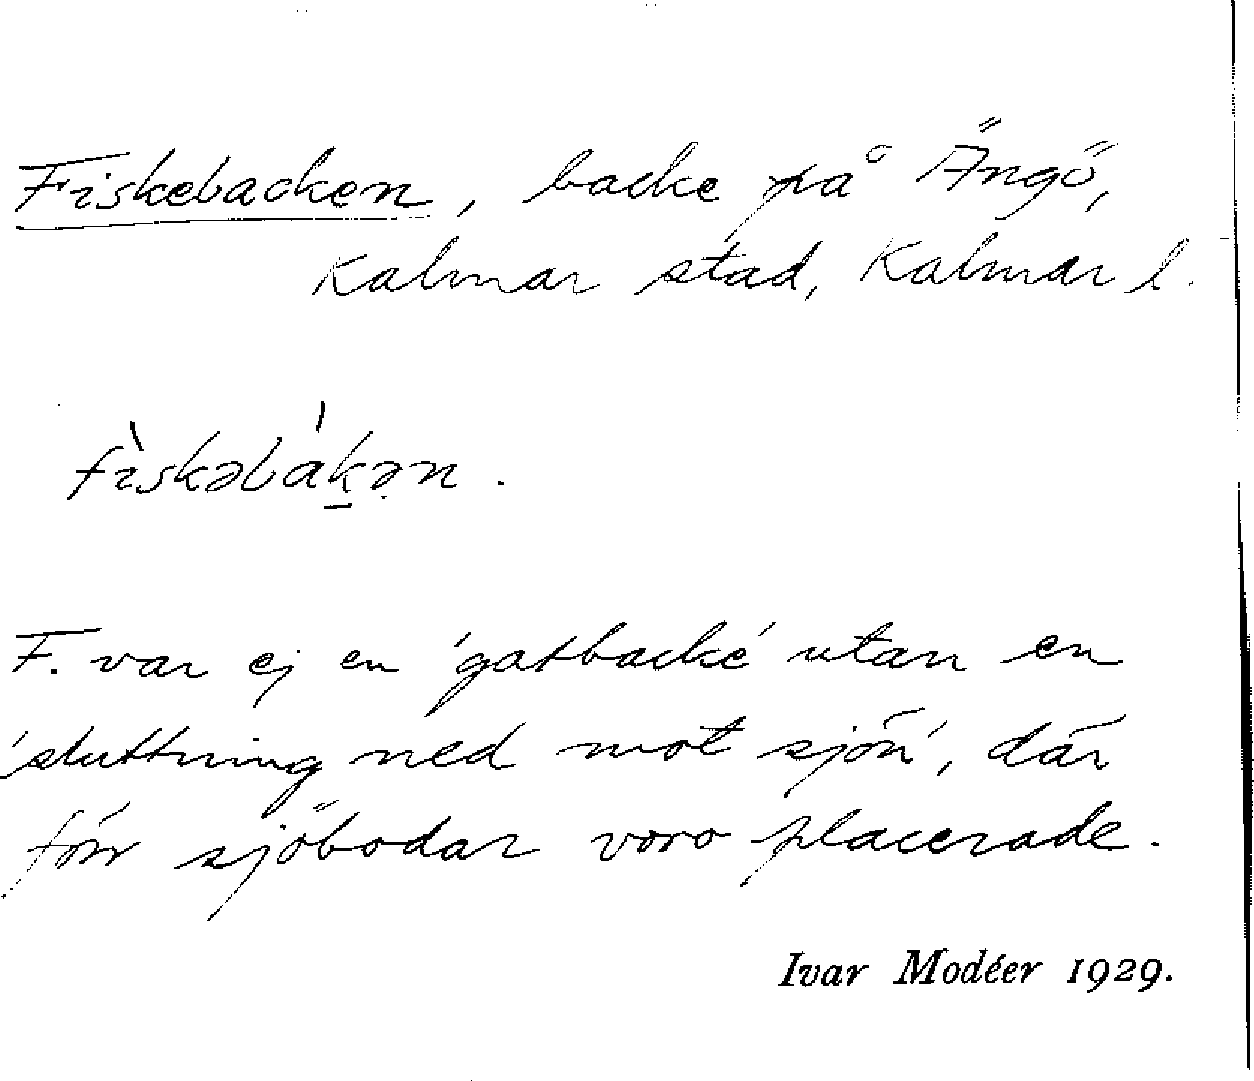 Fiskebacken, backe på Ängö,
Kalmar stad, Kalmar l.
fìskəbákə̣n.
F. var ej en 'gatbacke' utan en
'sluttning ned mot sjön', där
förr sjöbodar voro placerade.
Ivar Modéer 1929.